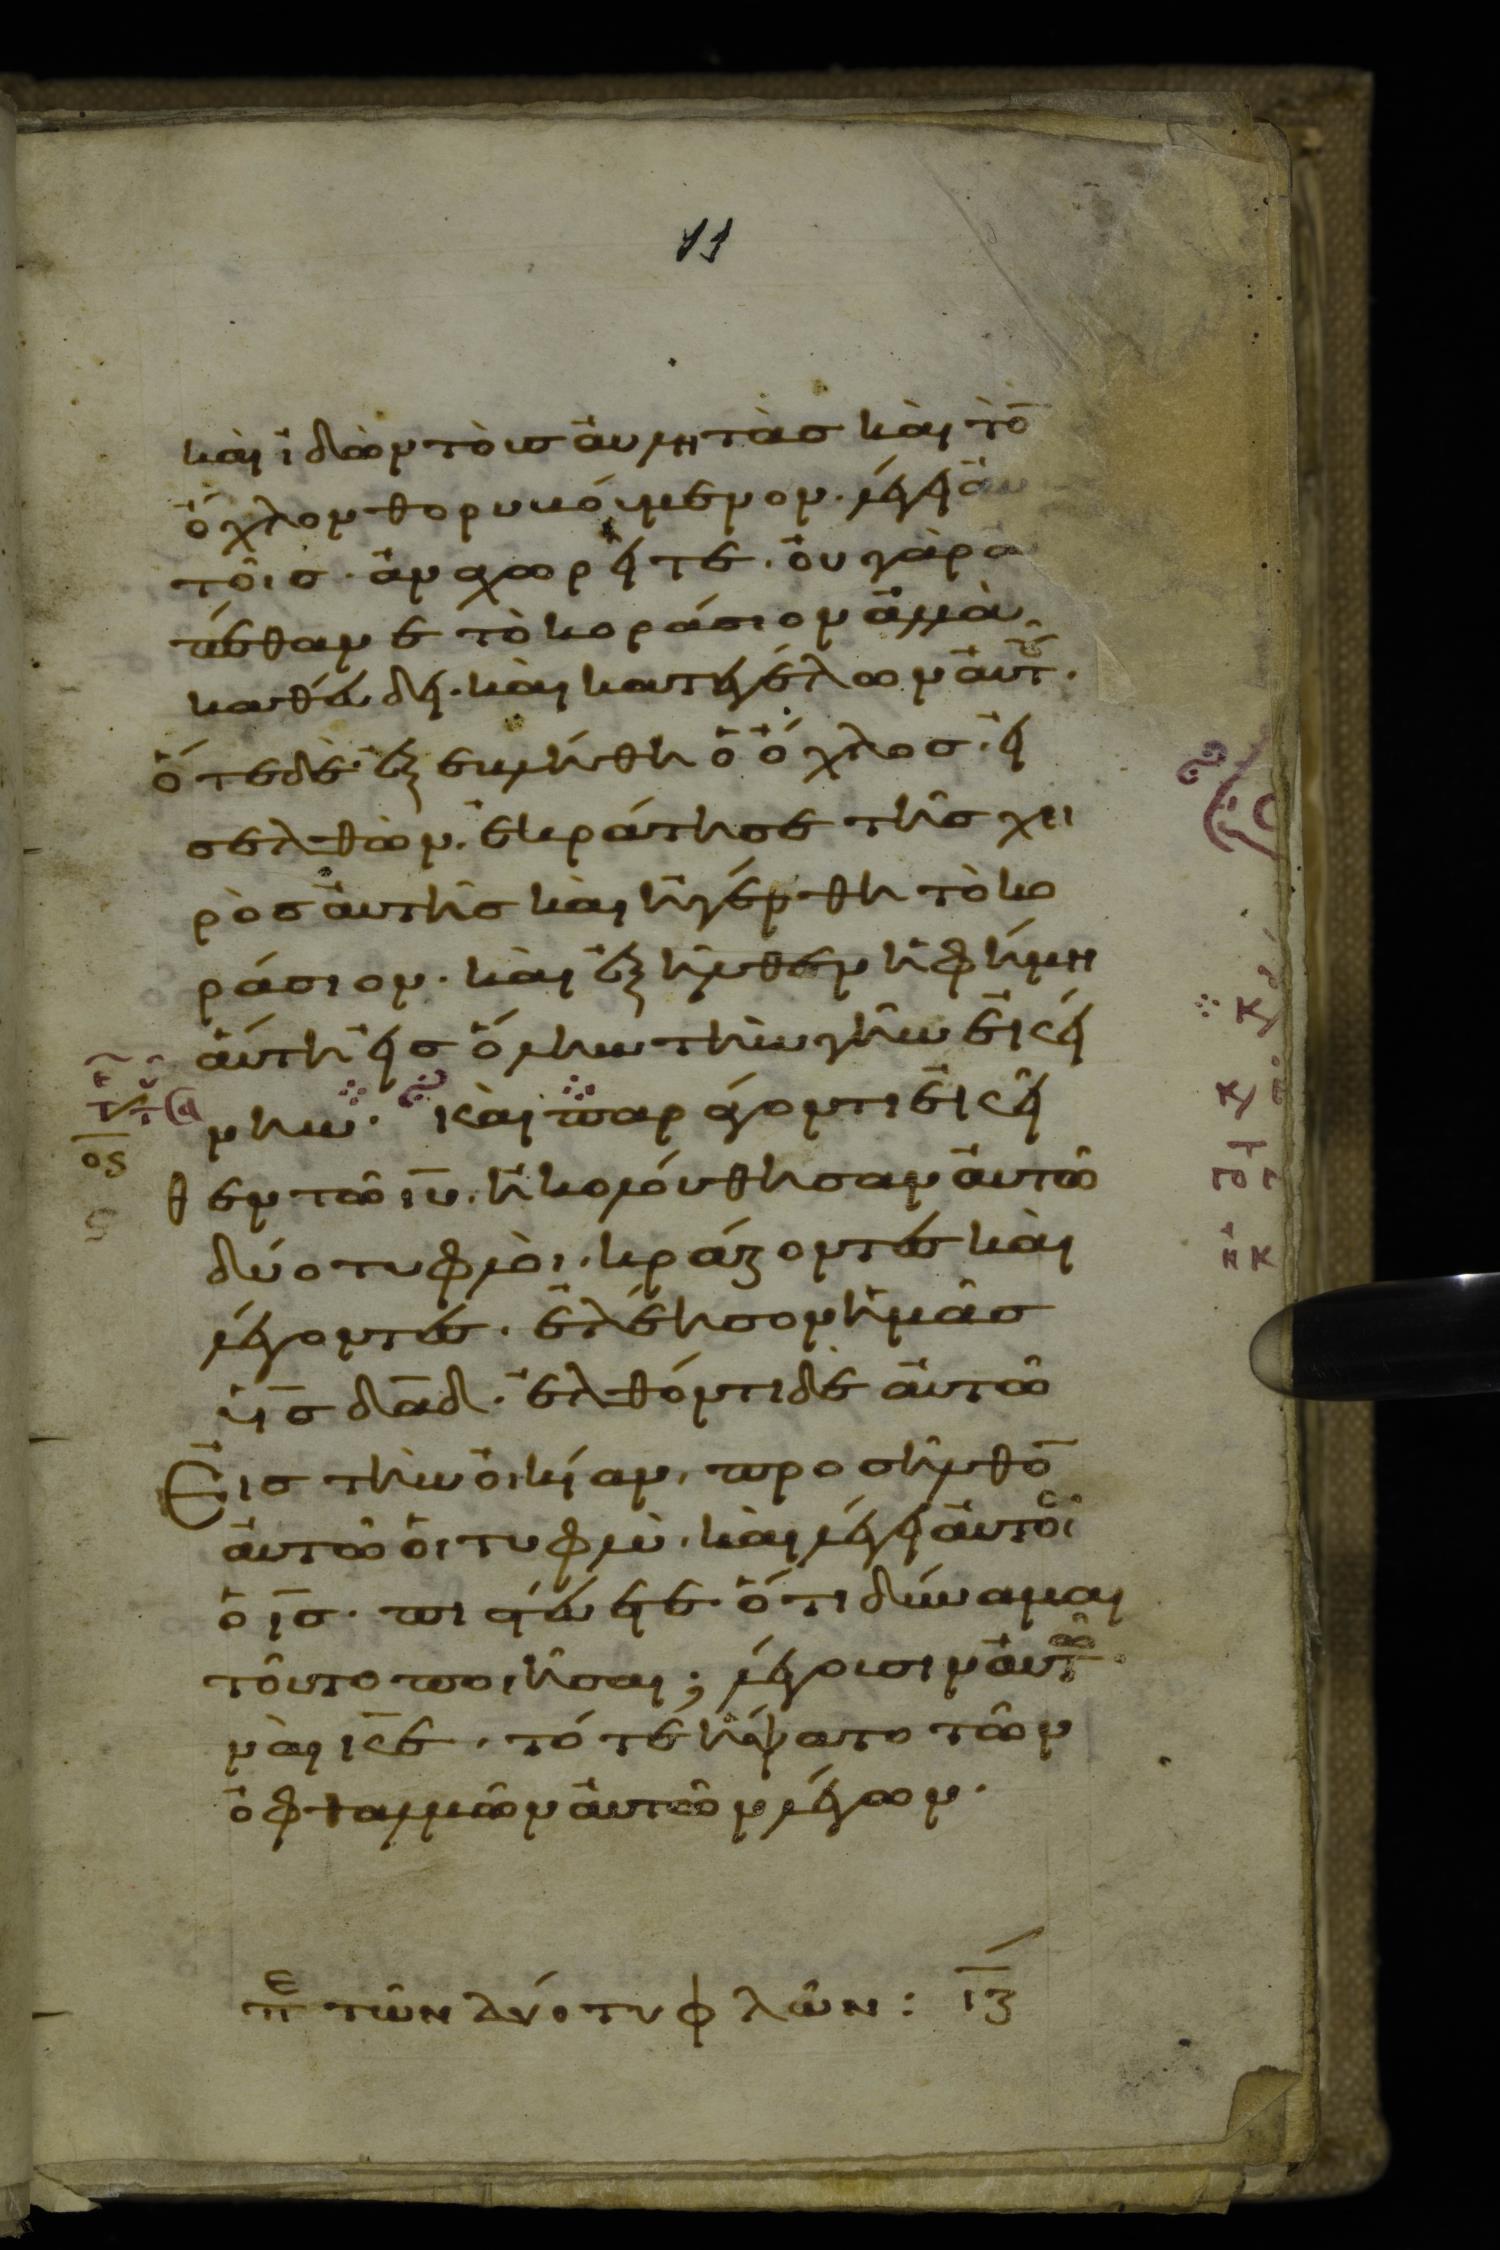 11
καὶ ἰδὼν τοὺς ἀυλητὰς καὶ τὸ̄
ὄχλον θορυβούμενον. λέγει ἀυ
τοῖς· ἀναχωρεῖτε. ὀυ γὰρ ἀ
πέθανε τὸ κοράσιον ἀλλὰ
καθέυδει. καὶ κατεγέλων ἀυτοῦ.
ὅτε δὲ ἐξεβλήθη ὁ ὄχλος. ἐι
σελθὼν. ἐκράτησε τῆς χει
ρὸς ἀυτῆς καὶ ἠγέρθη τὸ κο
ράσιον. καὶ ἐξῆλθεν ἡ φήμη
ἅυτη εἰς ὅλην τὴν γῆν ἐκεί
νην. καὶ παράγοντι ἐκεῖ
θεν τῶ ιῡ. ἠκολούθησαν ἀυτῶ
δύο τυφλοὶ. κράζοντες καὶ
λέγοντες. ἐλέησον ἡμᾶς
ῡς δᾱδ. ἐλθόντι δὲ ἀυτῶ
Εἰς τὴν ὀικίαν. προσῆλθο̄
ἀυτῶ ὁι τυφλοὶ. καὶ λέγει ἀυτοῖς
ὁ ῑς. πιστέυετε ὅτι δύναμαι
τοῦτο ποιῆσαι; λέγουσιν ἀυτῶ.
ναὶ κ̄ε. τότε ἥψατο τῶν
ὀφθαλμῶν ἀυτῶν λέγων.
ος
πε τῶν δύο τυφλῶν: ιζ